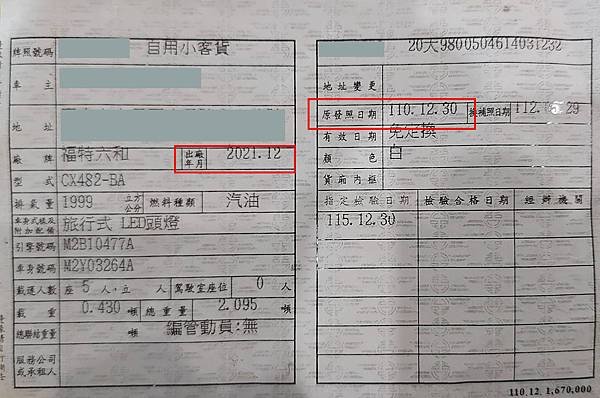 牌照號碼 自用小客貨
車主
地址
廠牌 福特六和 出廠年月 2021.12
型式 CX482-BA
排氣量 1999 立方公分 燃料種類 汽油
車身式樣及附加配備 旅行式 LED頭燈
引擎號碼 M2B10477A
車身號碼 M2Y03264A
載運人數 座 5 人,立 人 駕駛室座位 0 人
載重 0.430 噸 總重量 2.095 噸
總聯結重量 噸 編管動員:無
服務公司或承租人
20大9800504614031232
地址變更
原發照日期 110.12.30 換補照日期 112. 29
有效日期 免定換
顏色 白
貨廂內框
指定檢驗日期 檢驗合格日期 經辦機關
115.12.30
110.12.1,670,000